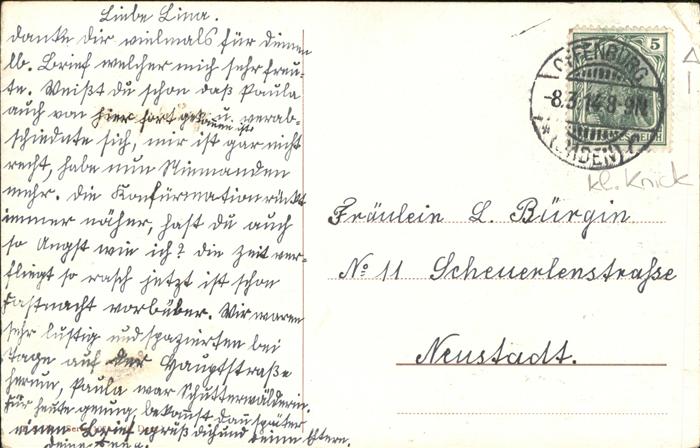 Liebe Lina.
danke dir vielmals für deinen
lb. Brief welcher mich sehr freu-
te. Weißt du schon daß Paula
auch von hier fort gekommen ist
u. verab-
schiednte sich, mir ist gar nicht
recht, habe nun Niemanden
mehr. die Konfürmation rückt
immer näher, hast du auch
so Angst wie ich? die Zeit ver-
fliegt so rasch jetzt ist schon
Fastnacht vorbüber. Wir waren
sehr lustig und spazierten bei
Tage auf der Hauptstraße
herum, Paula war Schutterwälderin.
für heute genug, bekomst dan später
einen Brief gruß dich und deine Eltern.
deine
5
OFFENBURG
-8.3.14.8-9N.
* (BADEN)
kl. Knick
Fräulein L. Bürgin
No 11 Scheuerlenstraße
Neustadt.